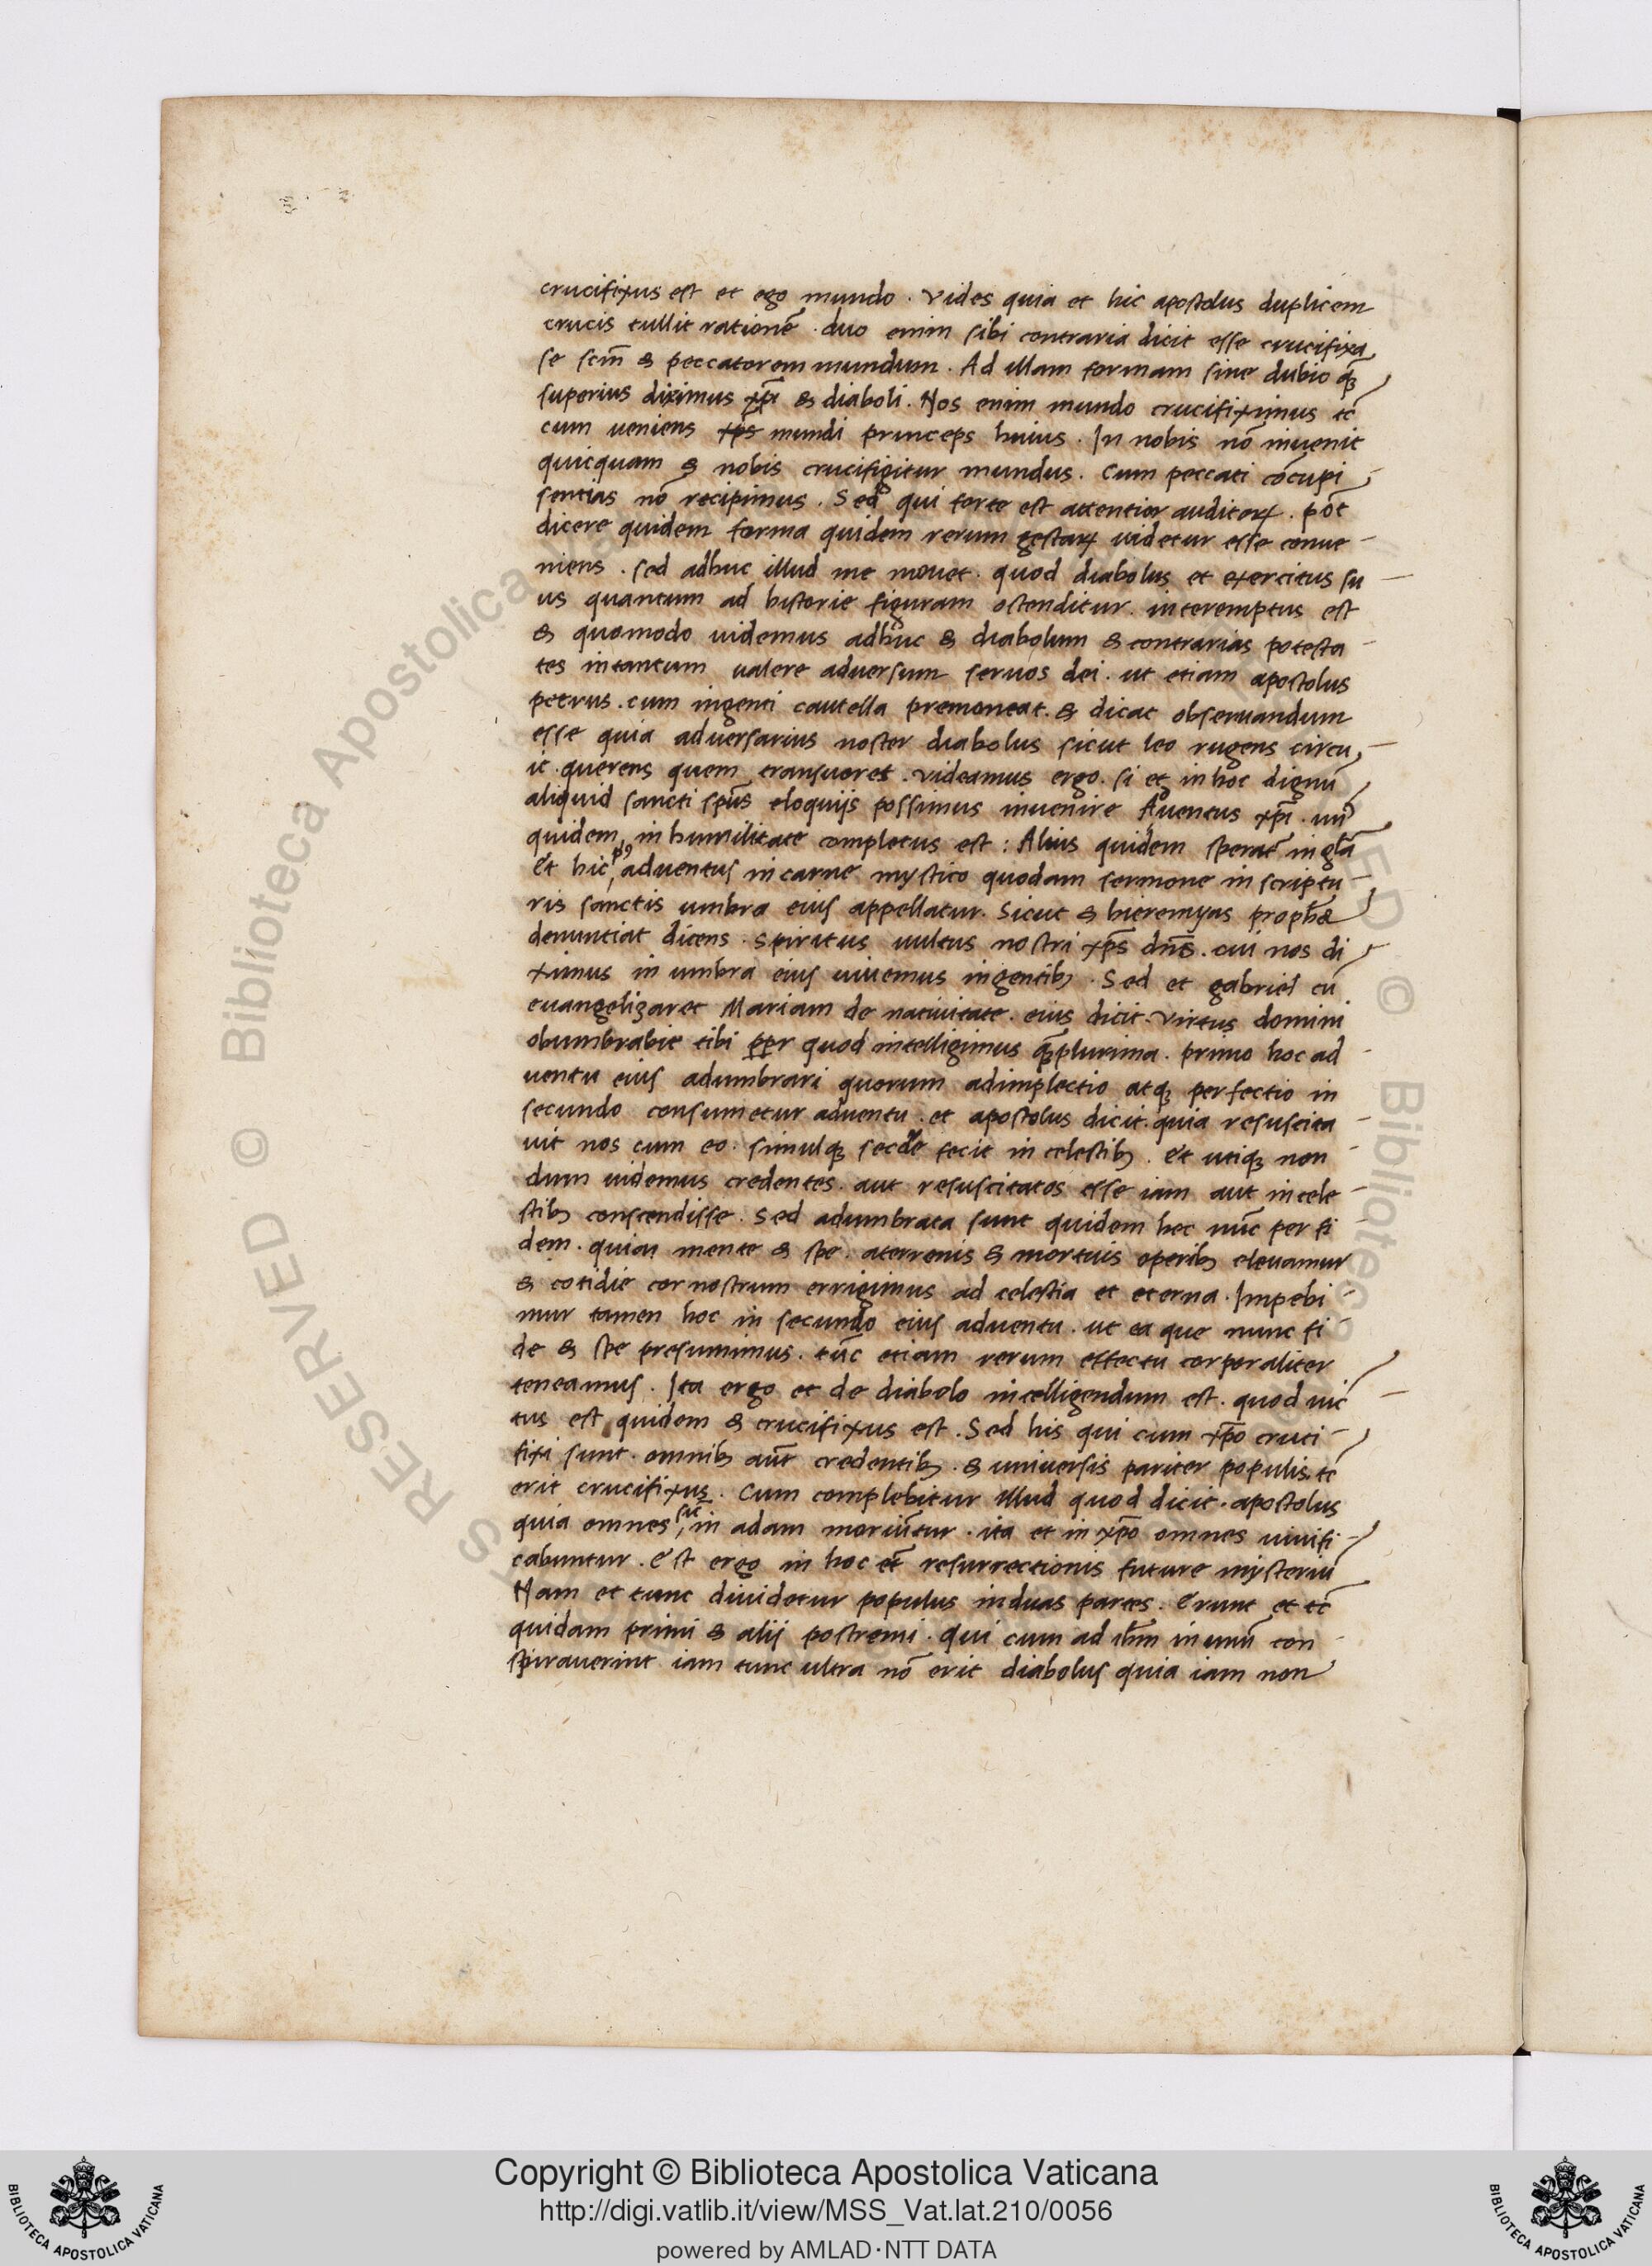 crucifixus est et ego mundo . Vides quia et hic apostolus duplicem
crucis tullit rationē . duo enim sibi contraria dicit esse crucifixa
se scm̄ & peccatorem mundum . Ad illam formam sine dubio qūa
superius diximus xp̄i & diaboli . Nos enim mundo crucifiximus tc̄
cum ueniens mundi princeps huius . In nobis nō inuenit
quicquam & nobis crucifigitur mundus . Cum peccati cōcupi
sentias nō recipimus . Sed qui forte est attentior auditoꝝ . pōt
dicere quidem forma quidem rerum gestaꝝ uidetur esse conue
niens . sed adhuc illud me mouet . quod diabolus et exercitus su
us quantum ad historie figuram ostenditur . interemptus est
& quomodo uidemus adhuc & diabolum & contrarias potesta
tes intantum ualere aduersum seruos dei . ut etiam apostolus
petrus . cum ingenti cautella premoneat . & dicat obseruandum
esse quia aduersarius noster diabolus sicut leo rugens circu
it . querens quem transuoret . Videamus ergo . si et in hoc dignū
aliquid sancti sp̄us eloquijs possimus inuenire Auentus xp̄i . un⁹
quidem in humilitate completus est : Alius quidem speratʳ in gl̄a
Et hic p⁹ aduentus in carne mystico quodam sermone in scriptu
ris sanctis umbra eius appellatur . Sicut & hieremyas proph̄a
denuntiat dicens . Spiritus uultus nostri xp̄s dn̄s . cui nos di
ximus in umbra eius uiuemus in gentibꝫ . Sed et gabriel cū
euangelizaret Mariam de natiuitate . eius dicit . Virtus domini
obumbrabit tibi ꝑꝑr quod intelligimus qūaplurima . primo hoc ad
uentu eius adumbrari quorum adimplectio atqꝫ perfectio in
secundo consumetur aduentu . et apostolus dicit . quia resuscita
uit nos cum eo . simulqꝫ sedere fecit in celestibꝫ . Et utiqꝫ non
dum uidemus credentes . aut resuscitatos esse iam aut in cele
stibꝫ conscendisse . Sed adumbrata sunt quidem hec nūc per fi
dem . quia mente & spe . aterrenis & mortuis operibꝫ eleuamur
& cotidie cor nostrum errigimus ad celestia et eterna . Impebi
mur tamen hoc in secundo eius aduentu . ut ea que nunc fi
de & spe presumimus . tūc etiam rerum effectu corporaliter
teneamus . Ita ergo et de diabolo intelligendum est . quod uic
tus est quidem & crucifixus est . Sed his qui cum xp̄o cruci
fixi sunt . omnibꝫ aūt credentibꝫ . & uniuersis pariter populis . tc̄
erit crucifixus . Cum complebitur illud quod dicit . apostolus
quia omnes sic̄ in adam moriūtur . ita et in xp̄o omnes uiuifi
cabuntur . Est ergo in hoc et̄ resurrectionis future mysteriū
Nam et tunc diuidetur populus in duas partes . Erunt et tc̄
quidam primi & alij postremi . qui cum ad ih̄m in unū con
spirauerint iam tunc ultra nō erit diabolus quia iam non
Copyright © Biblioteca Apostolica Vaticana
http://digi.vatlib.it/view/MSS_Vat.lat.210/0056
powered by AMLAD·NTT DATA